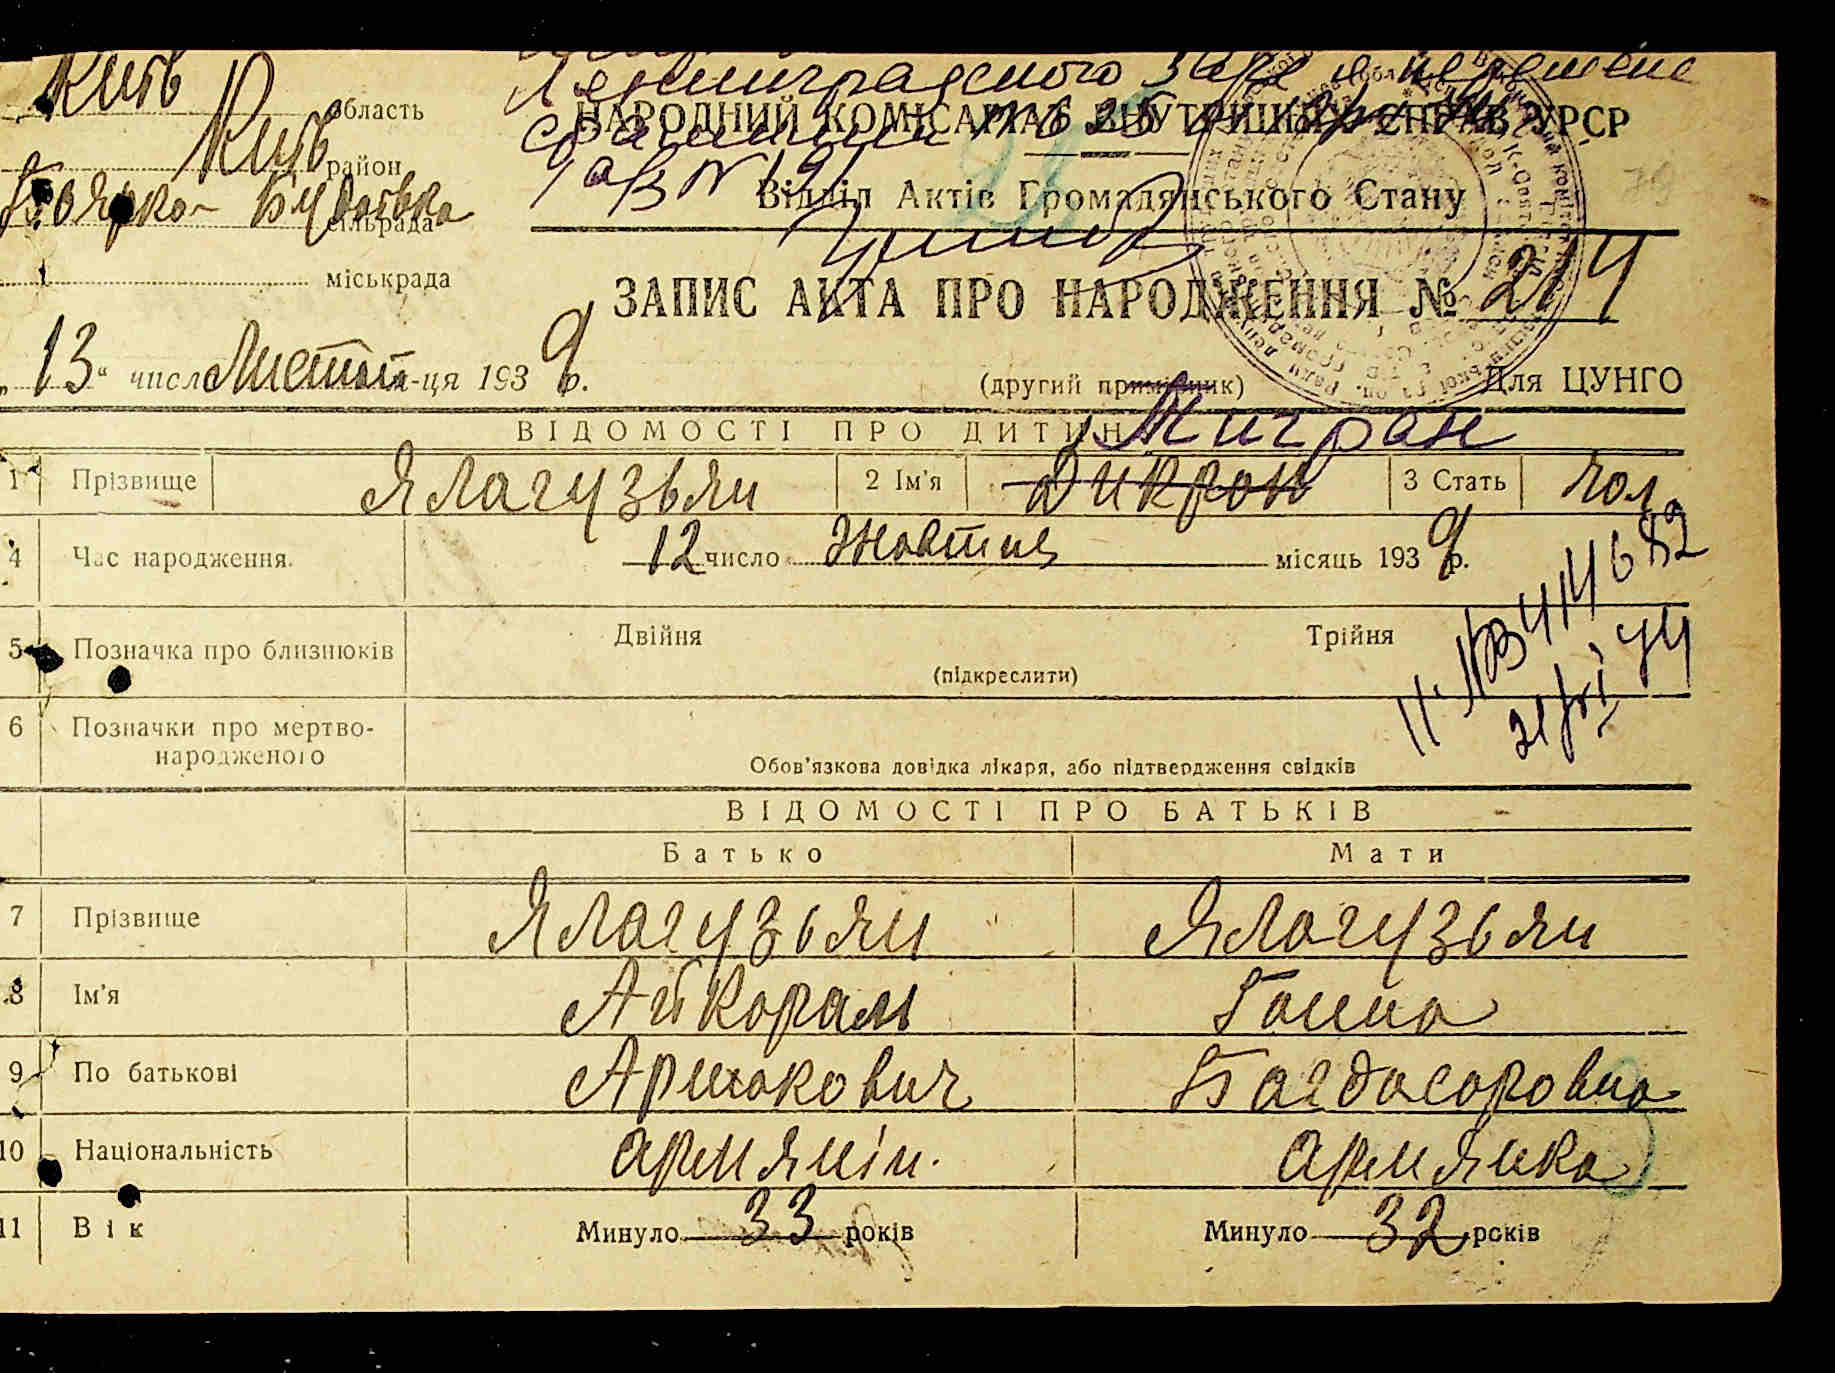 Київ область
Київ район
Боярко-Будаївка сільрада
міськрада
Ленинградского
НАРОДНИЙ КОМІСАРІАТ ВНУТРІШНІХ СПРАВ УРСР
Відділ Актів Громадянського Стану
ЗАПИС АКТА ПРО НАРОДЖЕННЯ № 214
„13“ число Листопа-ця 1939 р.
(другий примірник) Для ЦУНГО
ВІДОМОСТІ ПРО ДИТИН
Мигран
1 Прізвище Ялагузьян 2 Ім'я Дикрон 3 Стать чол.
4 Час народження. 12 число Жовтня місяць 1939 р.
5 Позначка про близнюків Двійня Трійня
(підкреслити)
6 Позначки про мертво-
народженого
Обов'язкова довідка лікаря, або підтвердження свідків
ВІДОМОСТІ ПРО БАТЬКІВ
Батько Мати
7 Прізвище Ялагузьян Ялагузьян
8 Ім'я Айкорам Ганна
9 По батькові Аршакович Багдасоровна
10 Національність армянін. армянка
11 Вік Минуло 33 років Минуло 32 років